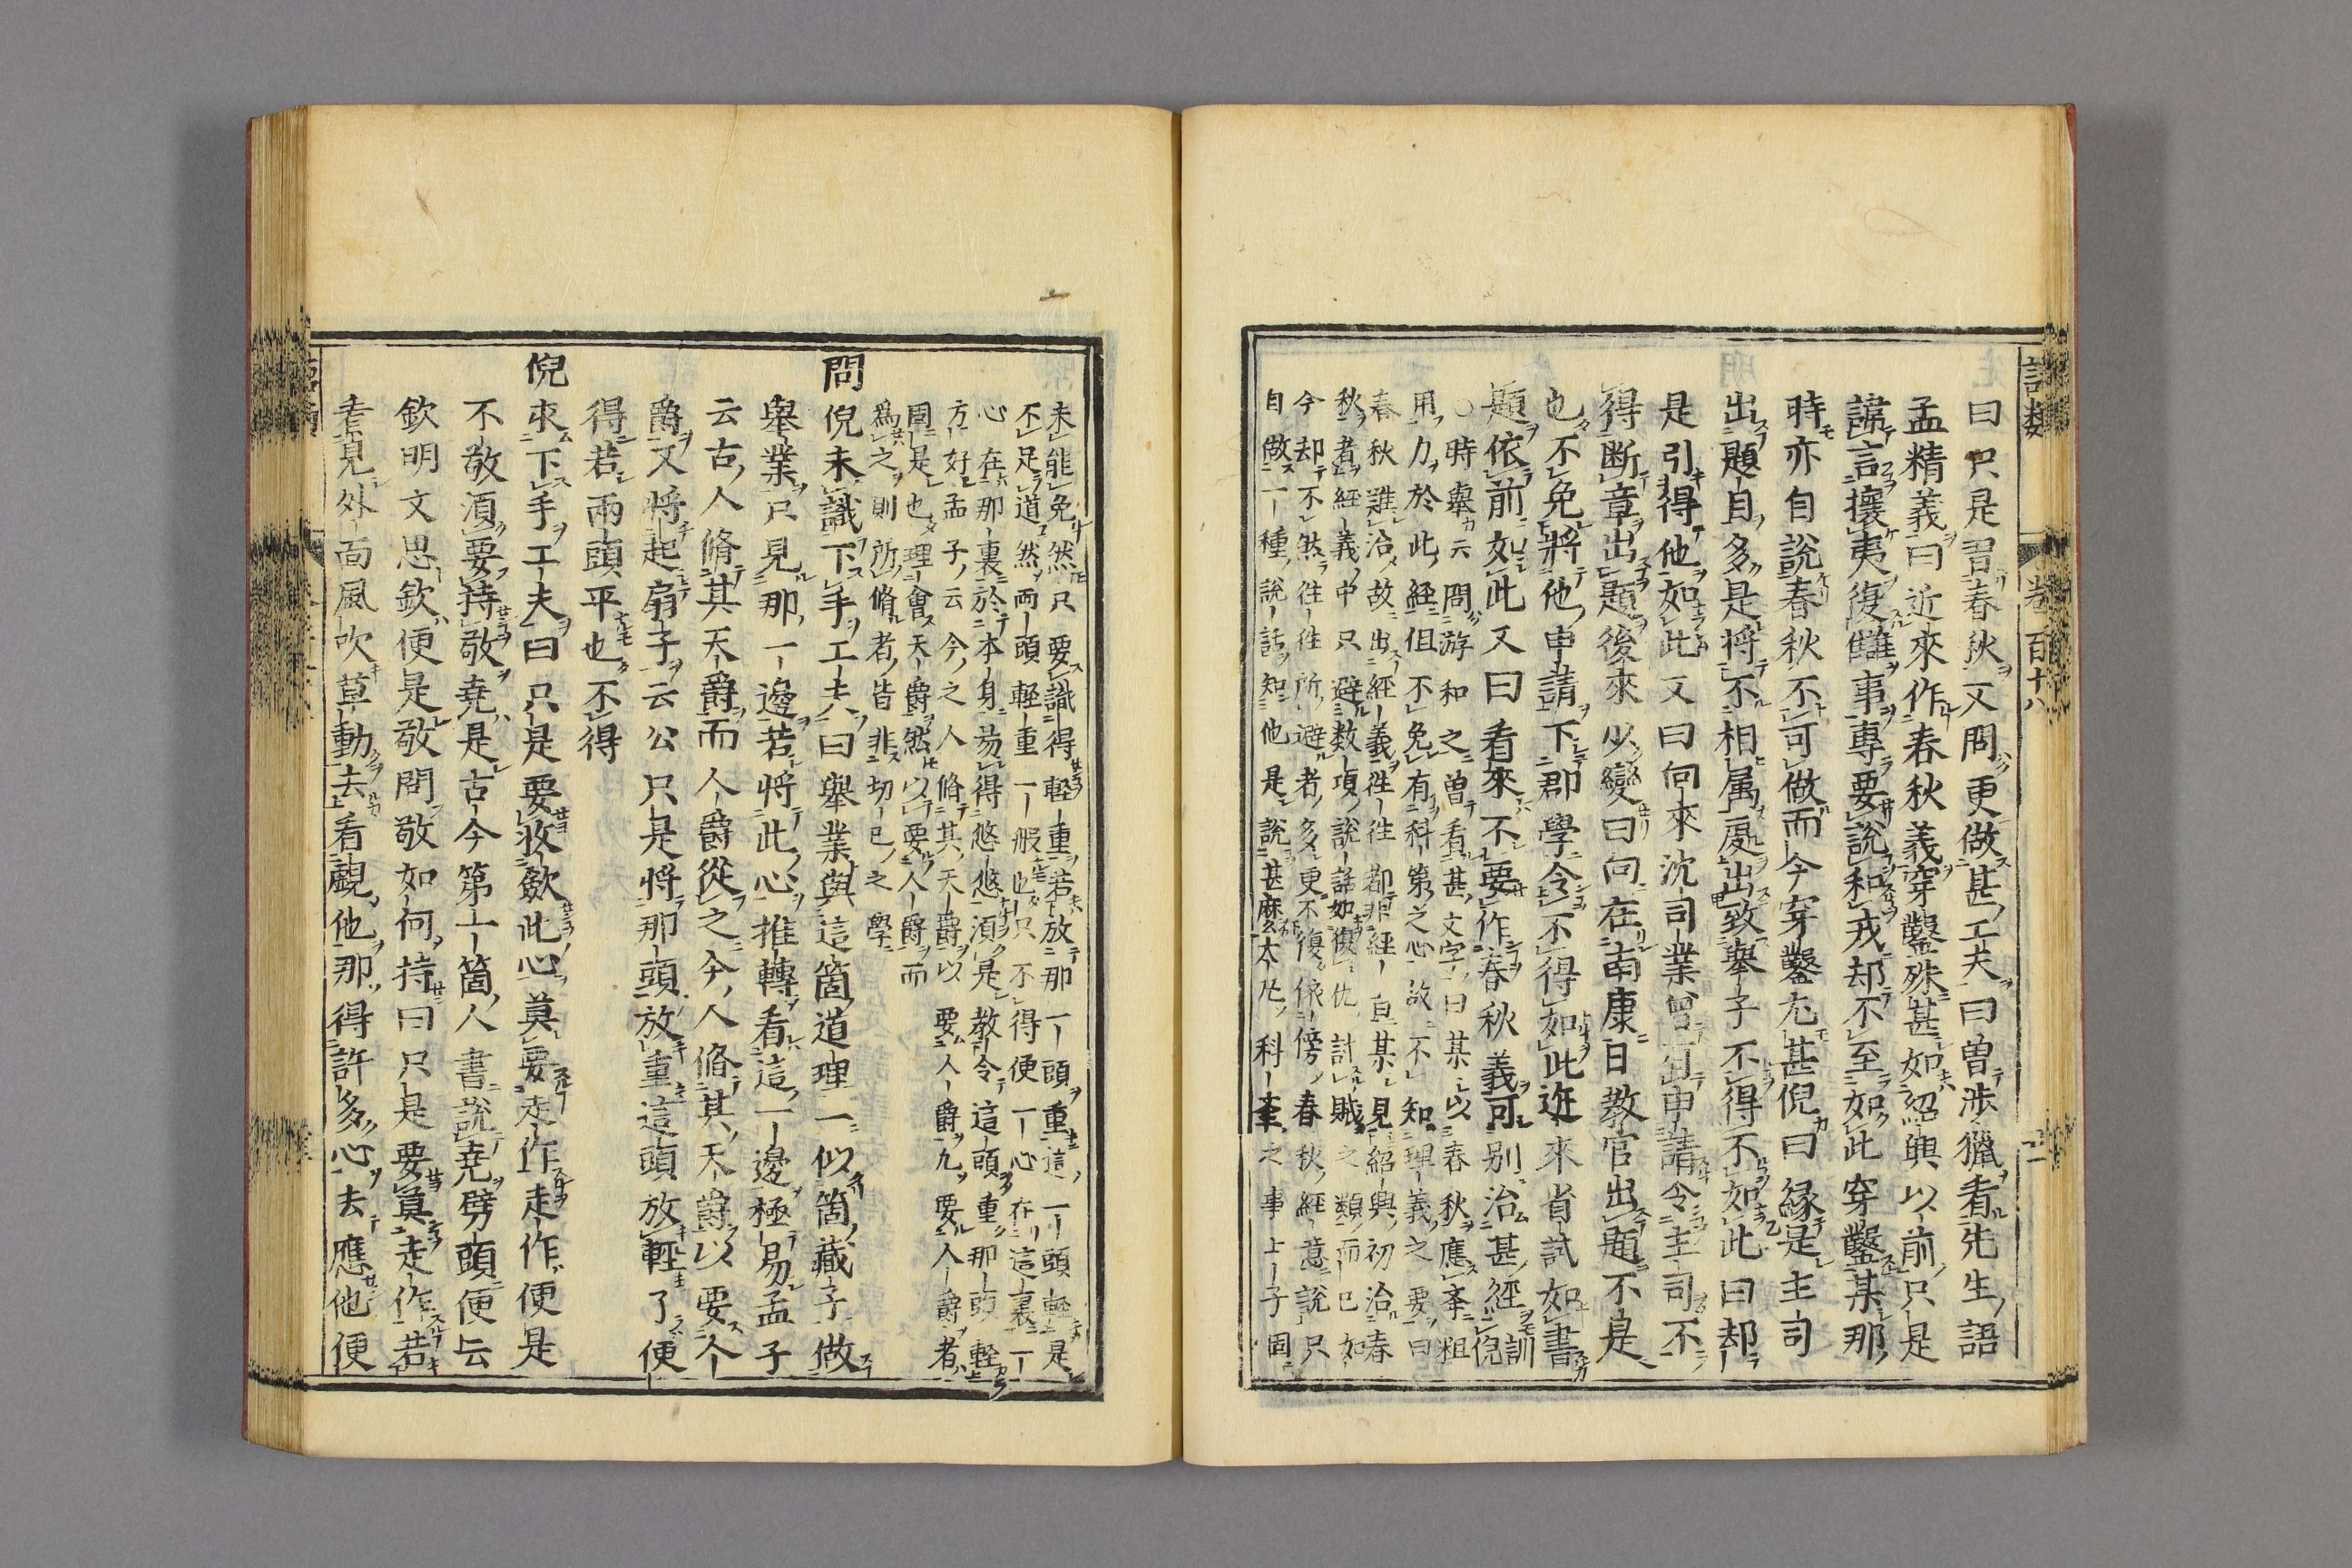 語類
卷百十八
曰只是習春秋又問更做甚工夫曰曽涉獵看先生語
孟精義曰近來作春秋義穿鑿殊甚如紹興以前只是
諱言攘夷復讎事專要說和戎却不至如此穿鑿某那
時亦自說春秋不可做而今穿鑿尤甚倪曰縁是主司
出題目多是將不相属處出致舉子不得不如此曰却
是引得他如此又曰向來沈司業曾有申請令主司不
得断章出題後來少變曰向在南康日教官出題不是
也不免將他申請下郡學令不得如此近來省試如書
題依前如此又曰看來不要作春秋義可别治甚經
訓倪
○時舉云問游和之曽看甚文字曰某以春秋應舉粗
用力於此經但不免有科第之心故不知理義之要曰
春秋難治故出經義徃徃都非經㫖某見紹興初治春
秋者經義中只避数項說話如復仇討賊之類而已如
今却不然徃徃所避者多更不復依傍春秋經意說只
自做一種說話知他是說甚麼太凡科舉之事士子固
未能免然只要識得輕重若放那一頭重這一頭輕是
不足道然兩頭輕重一般也只不得便一心在這裏一
心在那裏於本身易得悠悠須是教令這頭重那頭輕
方好孟子云今之人脩其天爵以要人爵凢要人爵者
固是也理會天爵然以要人爵而
爲之則所脩者皆非切已之學
問
倪未識下手工夫曰舉業與這箇道理一似箇藏子做
舉業只見那一邊若將此心推轉看這一邊極易孟子
云古人脩其天爵而人爵從之今人脩其天爵以要人
爵又將起扇子云公只是將那頭放重這頭放輕了便
得若兩頭平也不得
倪
求下手工夫曰只是要收斂此心莫要走作走作便是
不敬須要持敬堯是古今第一箇人書說堯劈頭便云
欽明文思欽便是敬問敬如何持曰只是要莫走作若
看見外面風吹草動去看覷他那得許多心去應他便